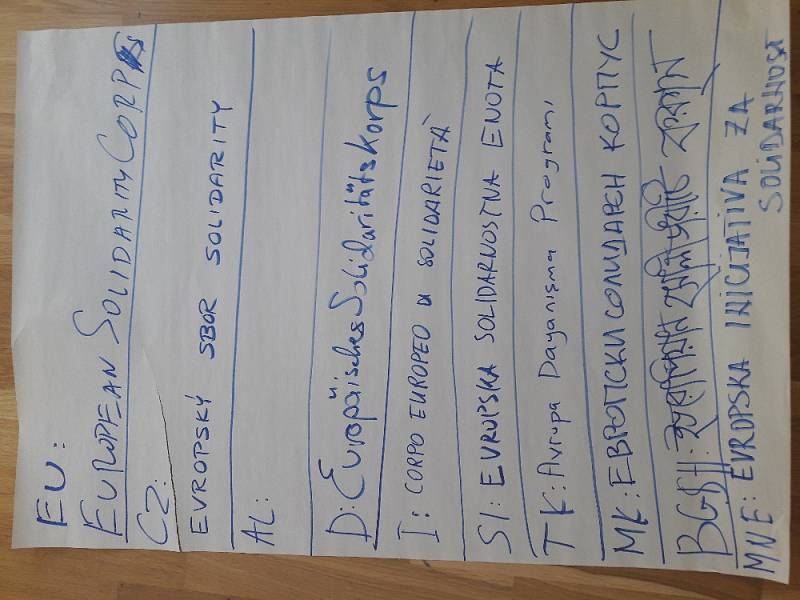 EU:
EUROPEAN SOLIDARITY CORPS
CZ:
EVROPSKÝ SBOR SOLIDARITY
AL:
D: Europäisches Solidaritätskorps
I: CORPO EUROPEO DI SOLIDARIETÀ
SI: EVROPSKA SOLIDARNOSTNA ENOTA
TK: Avrupa Dayanışma Programı
MK: ЕВРОПСКИ СОЛИДАРЕН КОРПУС
BGSH:
MNE: EVROPSKA INICIJATIVA ZA
SOLIDARNOST